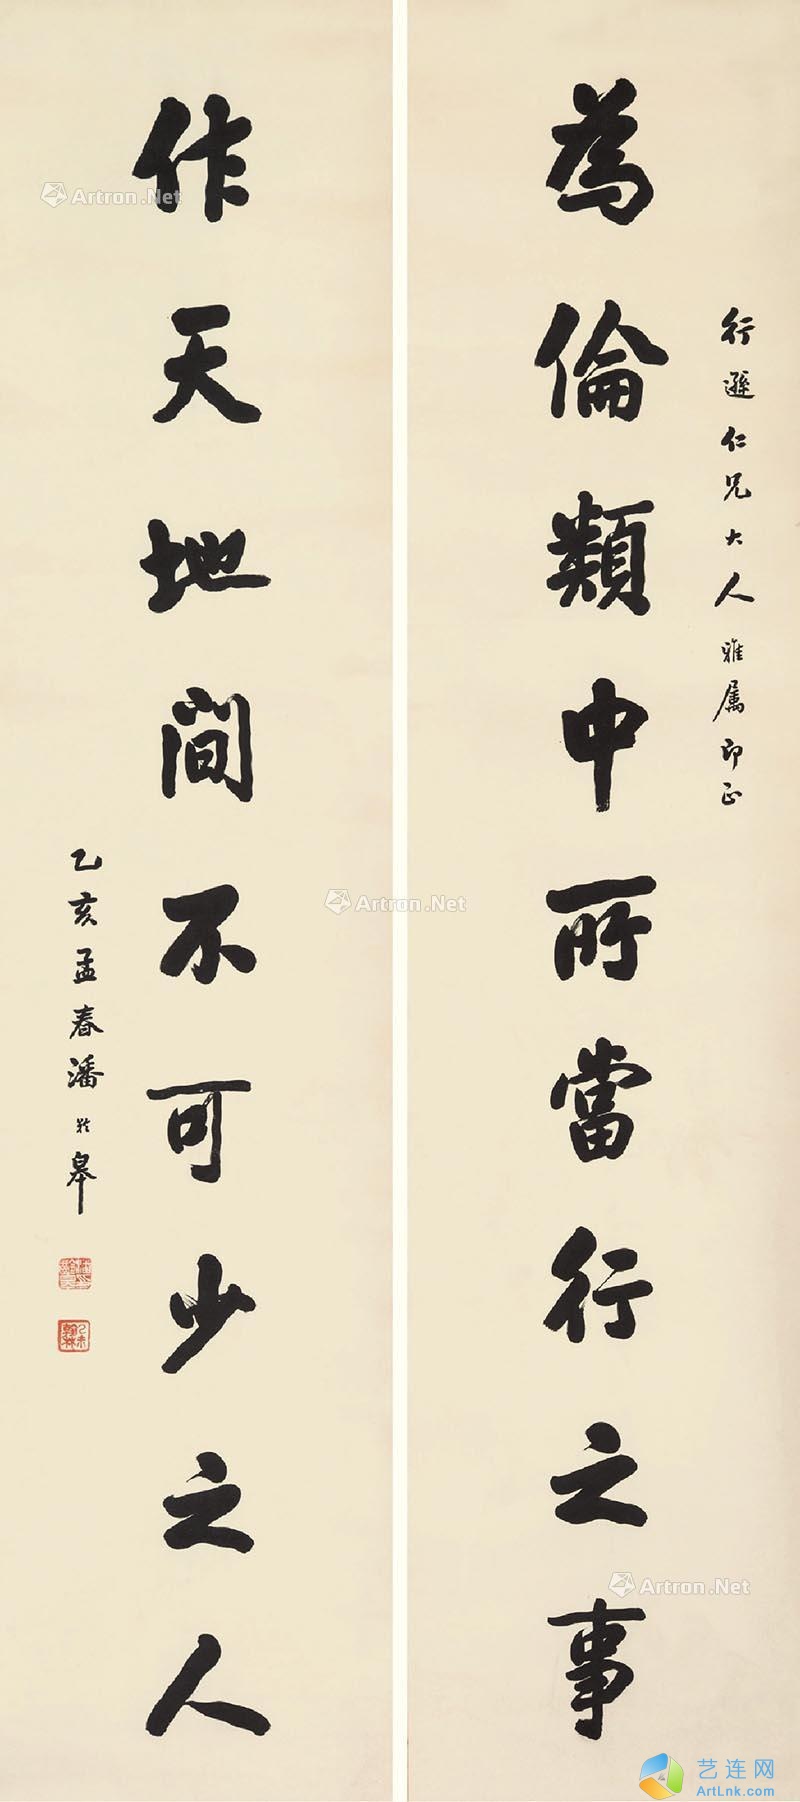 行遯仁兄大人雅属即正
為倫類中所當行之事
作天地間不可少之人
乙亥孟春潘齡皋
Artron.Net
Artron.Net
Artron.Net
艺连网
ArtLnk.com